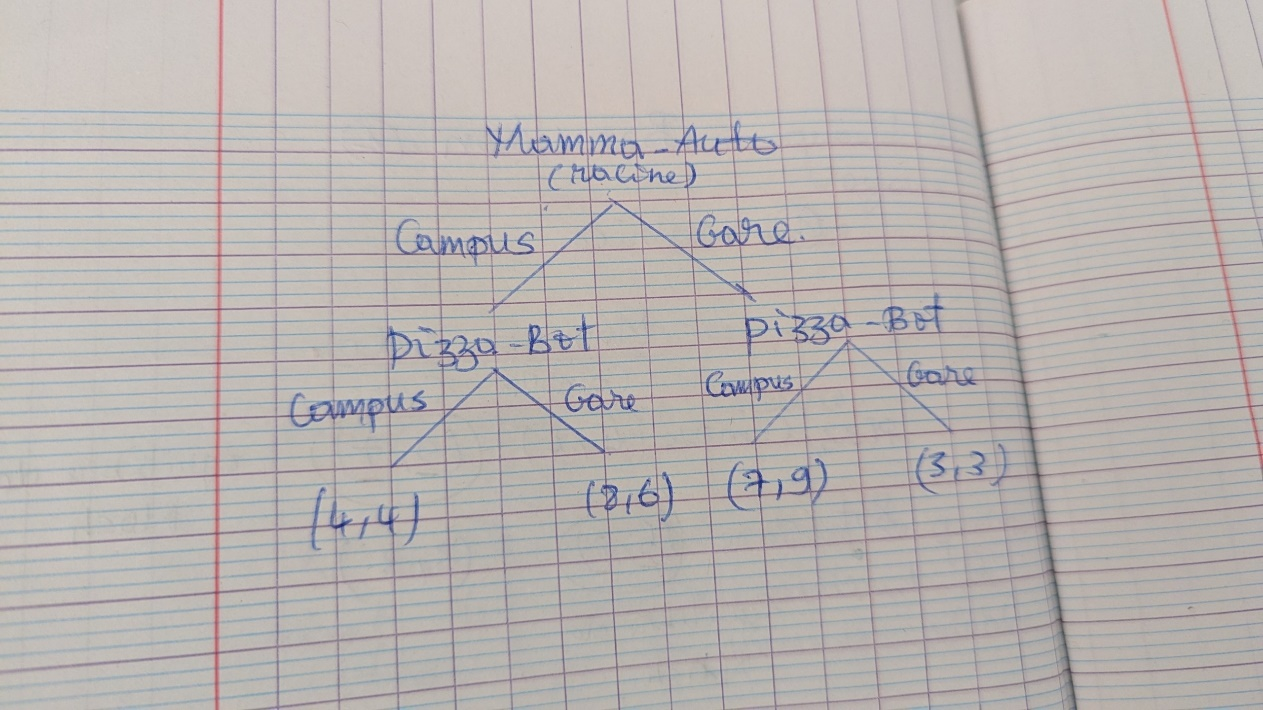 Mamma-Auto
(racine)
Campus
Gare.
Pizza-Bot
Pizza-Bot
Campus
Gare
Campus
Gare
(4,4)
(8,6)
(7,9)
(3,3)